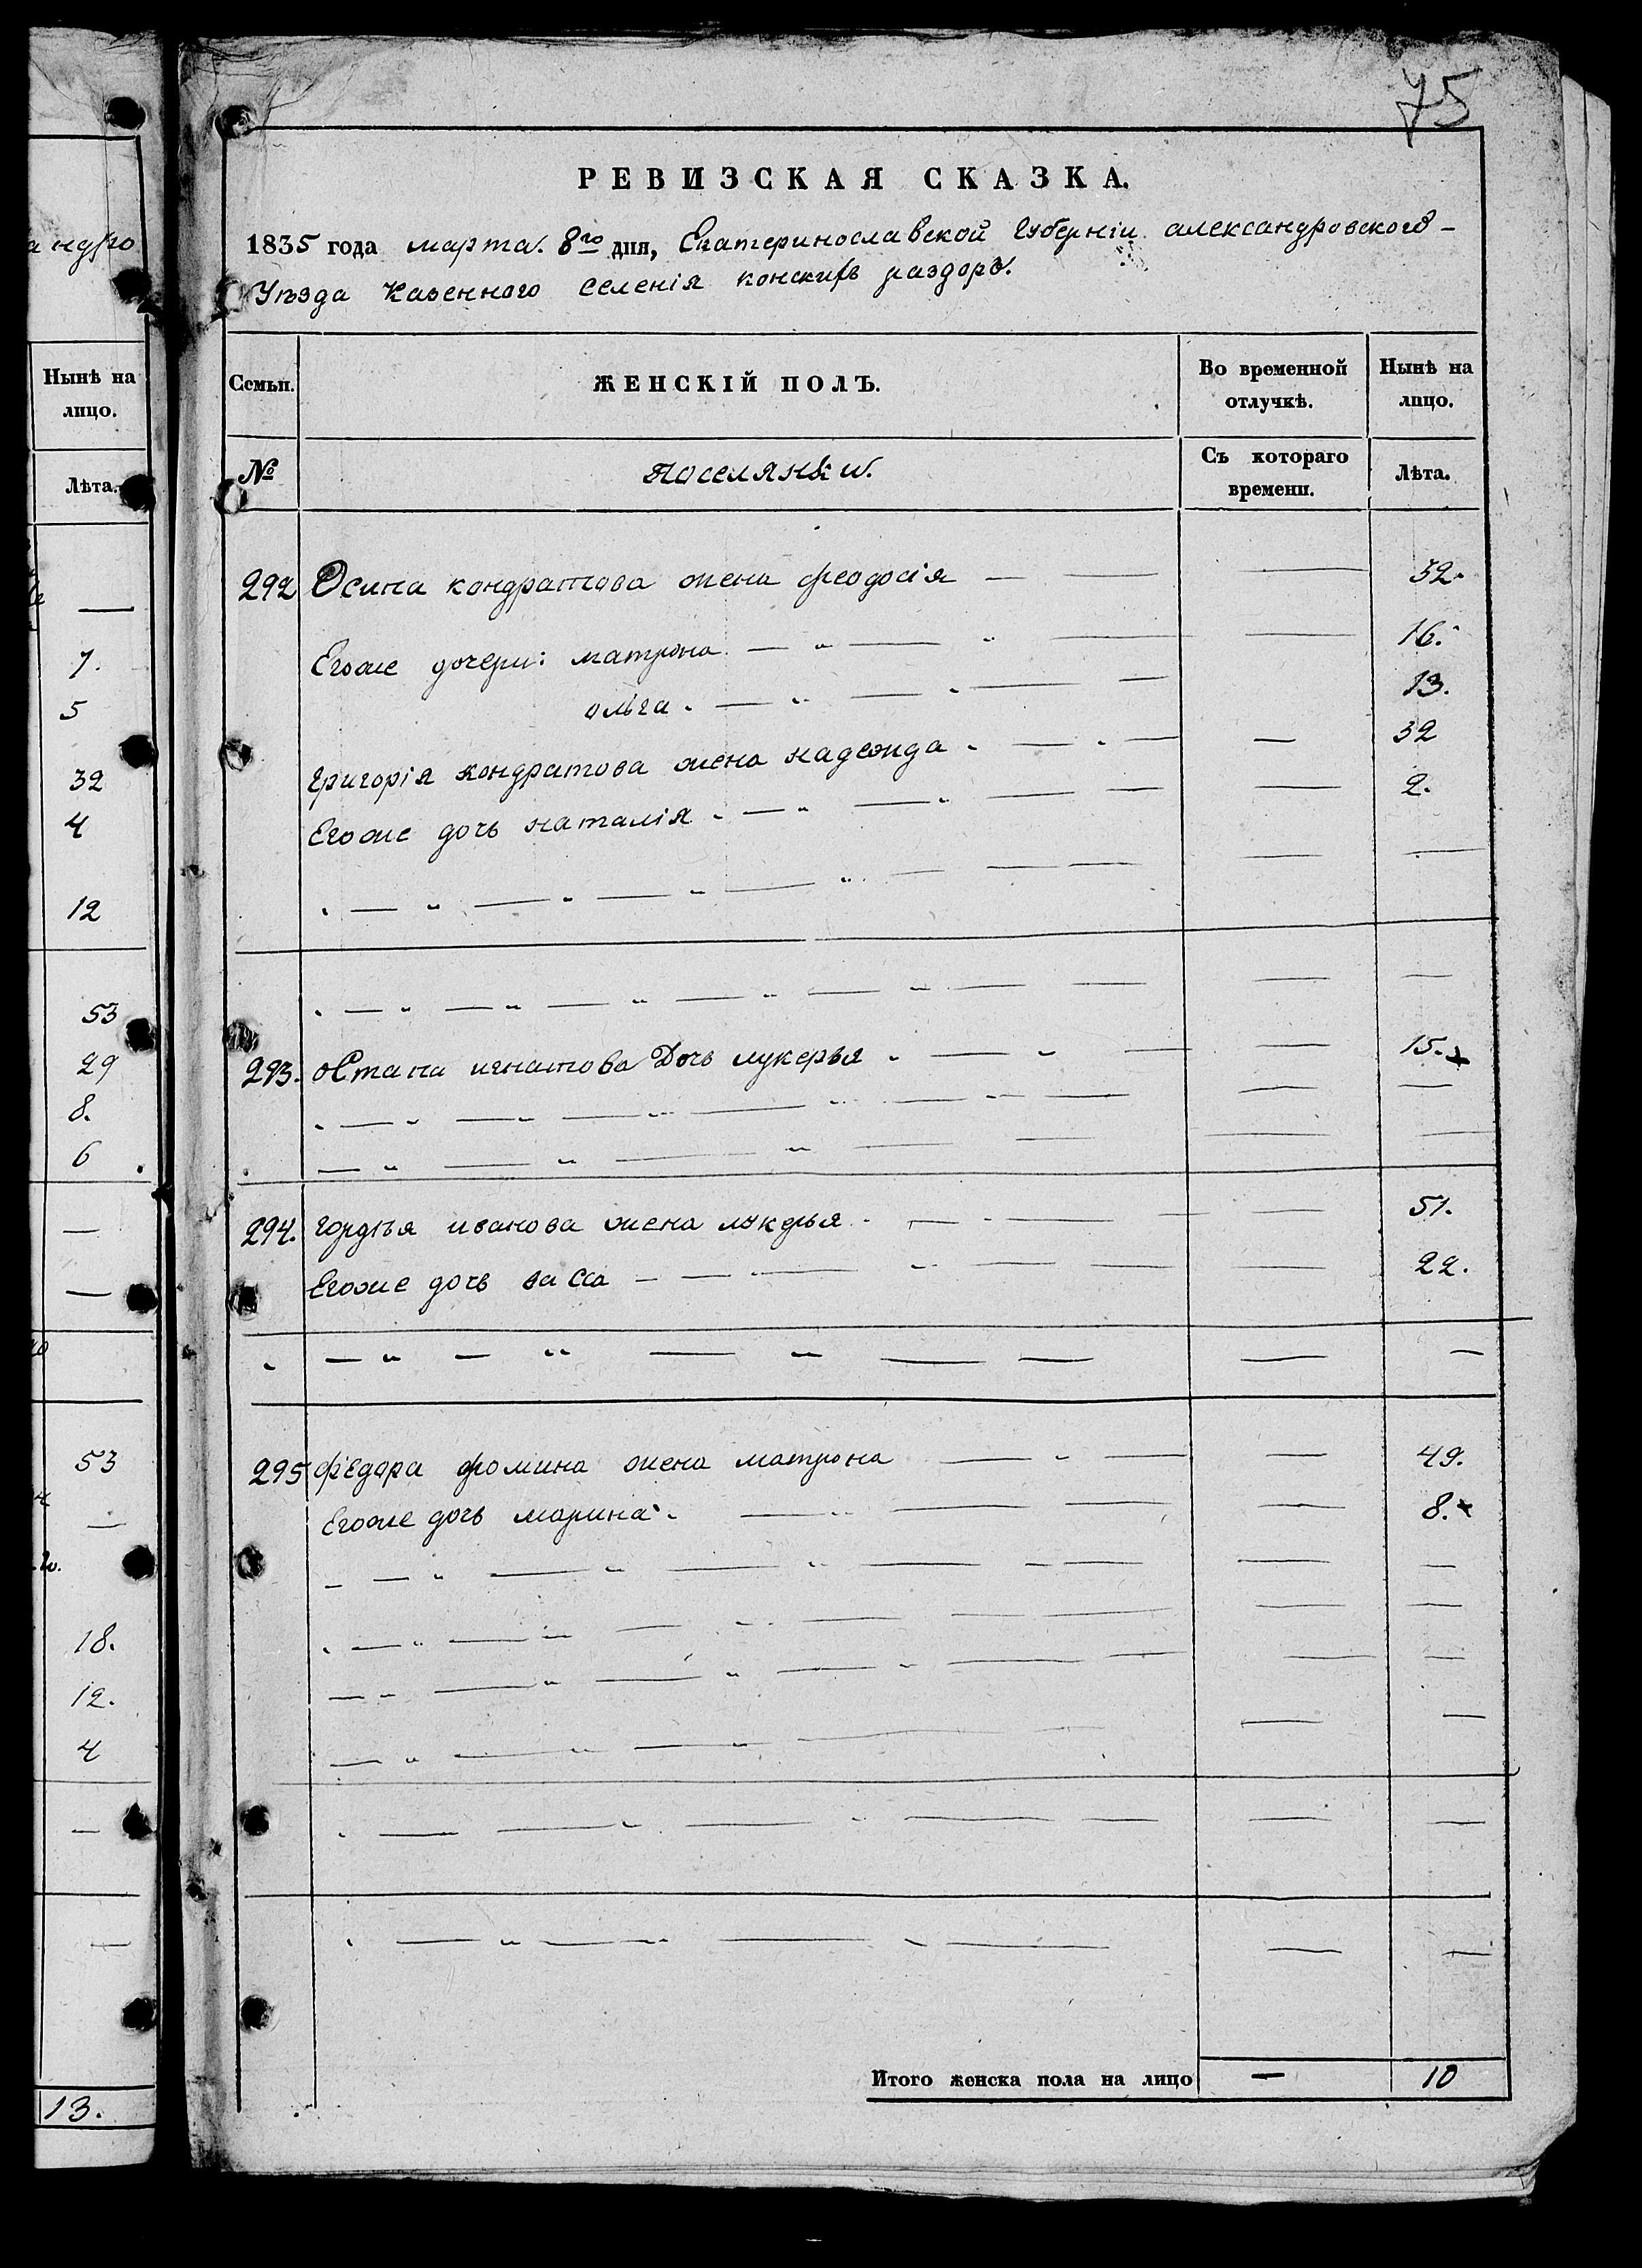 75
РЕВИЗСКАЯ СКАЗКА.
1835 года марта. 8го дня, Екатеринославской Губернiи александровскаго
Уѣзда Казенного селенія конскихъ раздоръ.
Семьи. ЖЕНСКІЙ ПОЛЪ. Во временной отлучкѣ. Нынѣ на лицо.
№ поселянки. Съ котораго времени. Лѣта.
292 Осипа кондратова жена феодосія — — — 32.
Егоже дочери: матрона — „ — „ — — 16.
ольга. — „ — „ — — 13.
Григорія кондратова жена надежда. — . — — 32
Егоже дочь наталія. — „ — „ — — — 2.
293. остапа игнатова Дочь лукерья. — „ — — 15. +
294. гордѣя иванова жена лукерья. — . — — — 51.
Егоже дочь васса — — — „ — — — 22.
295 федора фомина жена матрона — „ — — 49.
Егоже дочь марина. — „ — — — 8. +
Итого женска пола на лицо — 10
андро
Нынѣ на
лицо.
Лѣта.
—
7.
5
32
4
12
53
29
8.
6
—
—
53
—
18.
12.
4
—
—
13.